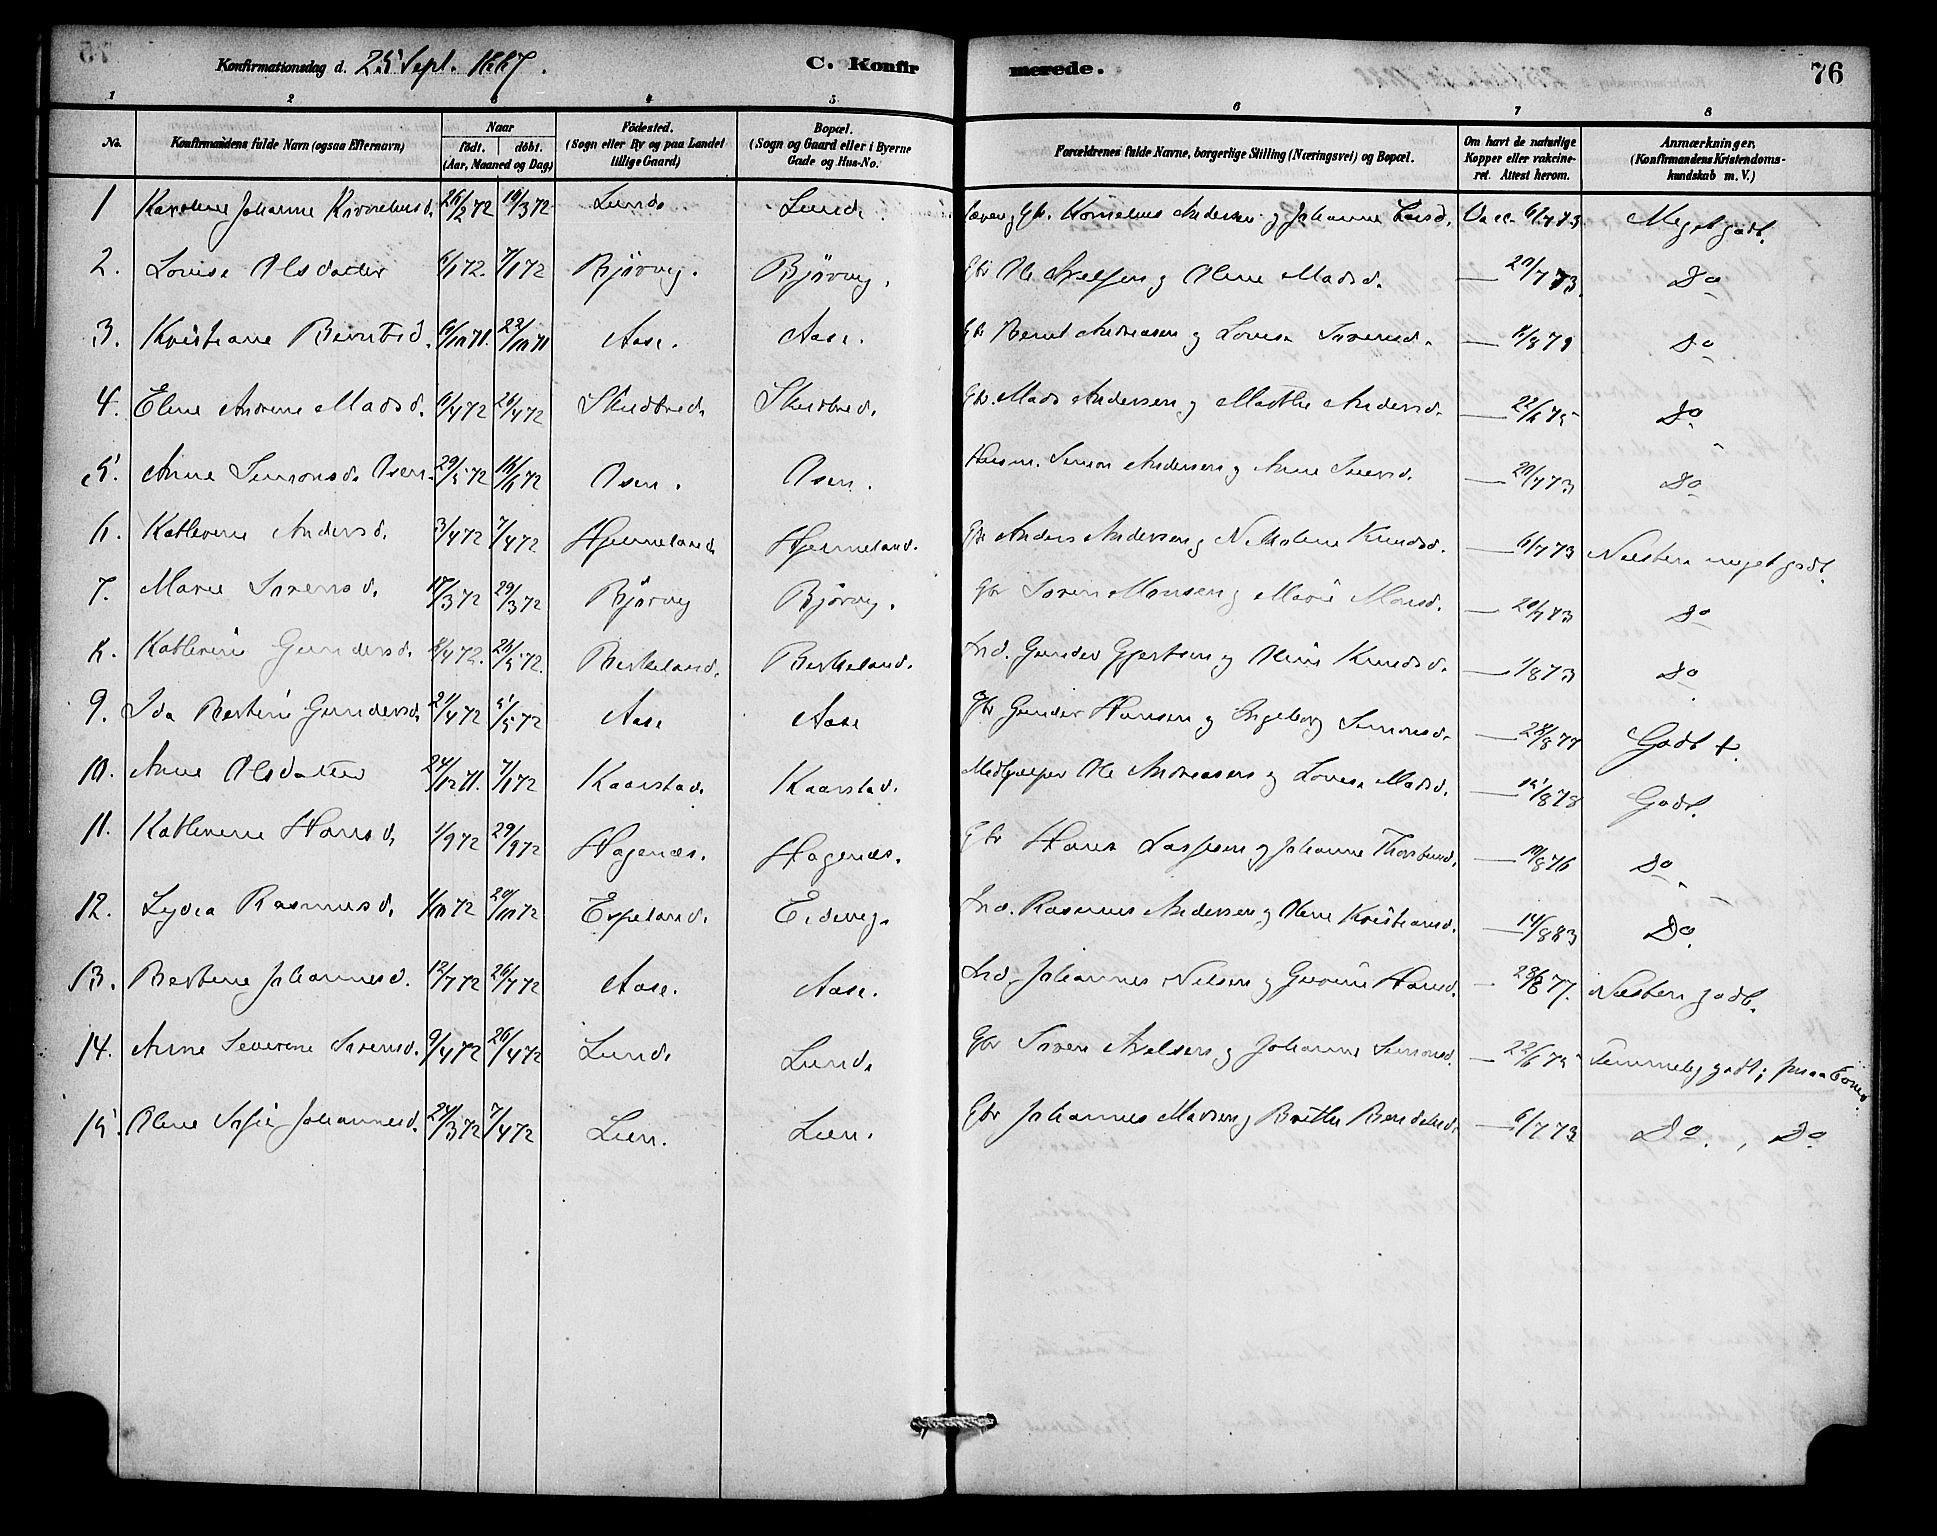 Konfirmationsdag d. 25 Sept. 1887. C. Konfirmerede. 76
1 2 3 4 5 6 7 8
No. Konfirmandens fulde Navn (ogsaa Efternavn) Naar födt. döbt. (Aar, Maaned og Dag) Födested. (Sogn eller By og paa Landet tillige Gaard) Bopæl. (Sogn og Gaard eller i Byerne Gade og Hus-No.) Forældrenes fulde Navne, borgerlige Stilling (Næringsvei) og Bopæl. Om havt de naturlige Kopper eller vakcineret. Attest herom. Anmærkninger, (Konfirmandens Kristendomskundskab m. V.)
1 Karoline Johanne Korneliusd. 26/2 72 /3 72 Lund. Lund. Gbr. Kornelius Andersen og Johanne Larsd. Vacc. 6/7 73 Meget godt.
2. Lovise Olsdatter 6/1 72. 7/1 72 Bjørvig. Bjørvig. Gbr Ole Axelsen og Oline Madsd. — 20/7 73. Do
3. Kristiane Berntsd. 6/10 71. 22/10 71 Aase. Aase. Gbr Bernt Andreasen og Lovise Sørensd. — 8/8 79 Do
4. Eline Andrine Madsd. 6/4 72 26/4 72 Skudbred. Skudbred. Gbr. Mads Andersen og Marthe Andersd. — 22/6 75 Do
5. Anne Simonsd. Osen. 29/5 72 16/6 72 Osen. Osen. Husm. Simon Andersen og Anne Siversd. — 20/7 73 Do
6. Kathrine Andersd. 3/4 72 7/4 72 Hjemeland Hjemeland. Gbr Anders Andersen og Nikoline Knudsd. — 6/7 73 Næsten meget godt.
7. Marie Sørensd. 17/3 72 29/3 72 Bjørvig Bjørvig. Gbr Søren Monsen og Marie Monsd. — 20/7 73 Do
8. Kathrine Gundersd. 8/4 72. 26/5 72. Birkeland. Birkeland. Ind. Gunder Gjertsen og Oline Knudsd. — 1/8 73 Do
9. Ida Bertine Gundersd. 21/4 72 5/5 72 Aase Aase Gbr Gunder Hansen og Ingeborg Simonsd. — 28/8 77 Godt +.
10. Anne Olsdatter 24/12 71. 7/1 72 Kaarstad. Kaarstad. Medhjælper Ole Andreasen og Lovise Madsd. — 15/8 78 Godt.
11. Kathrine Hansd. 1/9 72 29/9 72 Hagenæs. Hagenæs. Gbr Hans Jaspersen og Johanne Thorstensd. — 10/8 76 Do.
12. Lydia Rasmusd. 1/10 72 20/10 72 Espeland. Eidevig. Ind. Rasmus Andersen og Oline Kristiansd. — 14/8 83 Do.
13. Bertine Johannesd. 12/7 72 26/7 72 Aase. Aase. Ind. Johannes Nilsen og Gurine Hansd. — 28/8 77. Næsten godt.
14. Anne Severine Sørensd. 9/4 72 26/4 72 Lund. Lund. Gbr Søren Axelsen og Johanne Simonsd. — 22/6 75 Temmelig godt;
15. Oline Sofie Johannesd. 24/3 72 7/4 72 Lien. Lien. Gbr Johannes Madsen og Brithe Bendiksd. — 6/7 73 Do. , Do